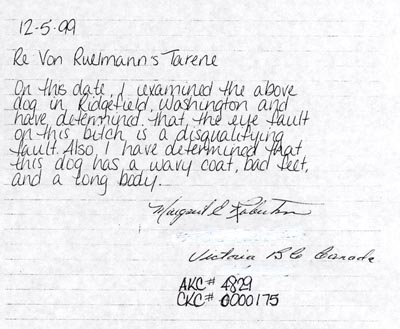 12-5-99
Re Von Ruelmann's Tarene
On this date, I examined the above
dog in Ridgefield, Washington and
have determined that the eye fault
on this bitch is a disqualifying
fault. Also, I have determined that
this dog has a wavy coat, bad feet,
and a long body.
Margaret C Robertson
Victoria B C Canada
AKC# 4829
CKC# 0000175